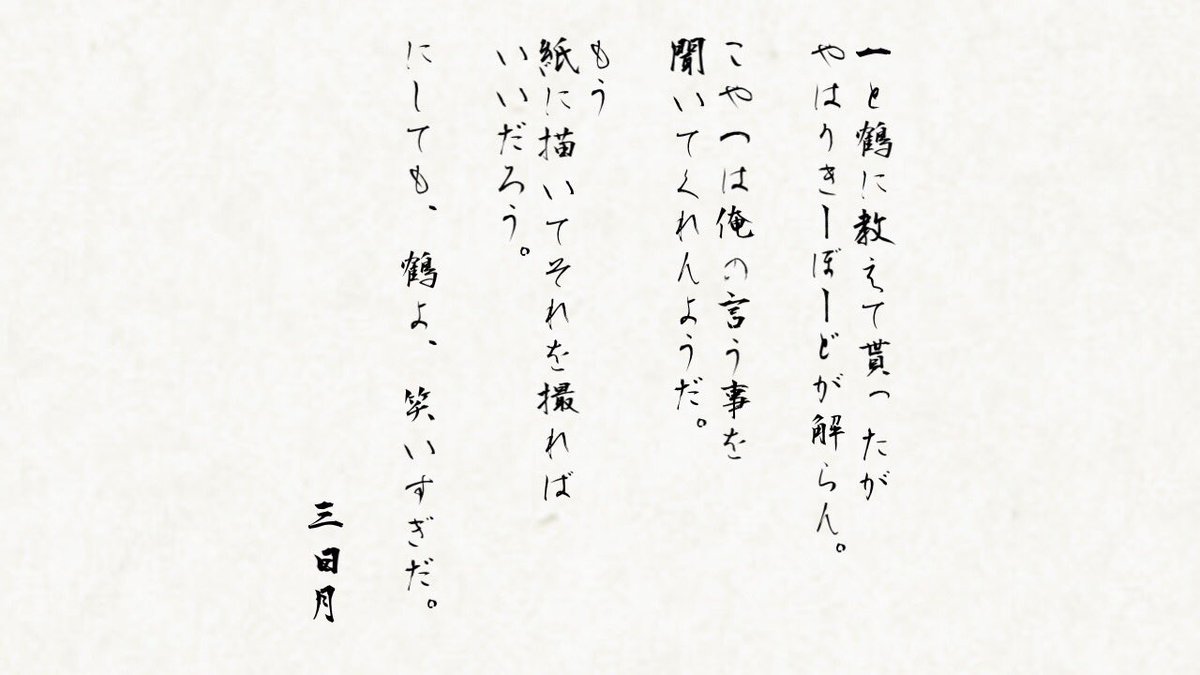 一と鶴に教えて貰ったが
やはりきーぼーどが解らん。
こやつは俺の言う事を
聞いてくれんようだ。
もう
紙に描いてそれを撮れば
いいだろう。
にしても、鶴よ、笑いすぎだ。
三日月